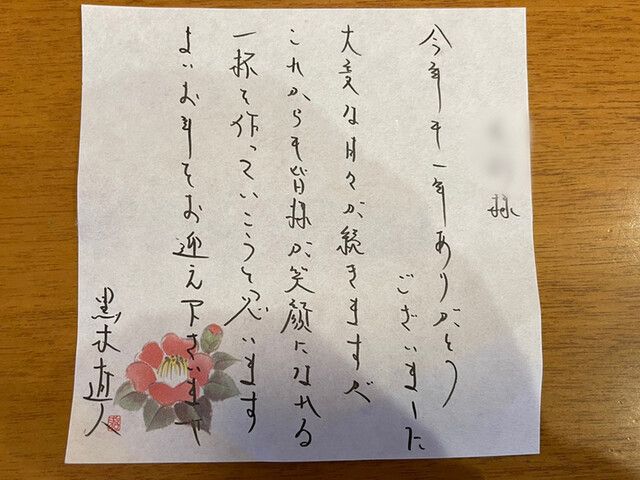 様
今年も一年ありがとう
ございました
大変な日々が続きますが
これからも皆様が笑顔になれる
一杯を作っていこうと思います
よいお年をお迎え下さいませ
黒木直人